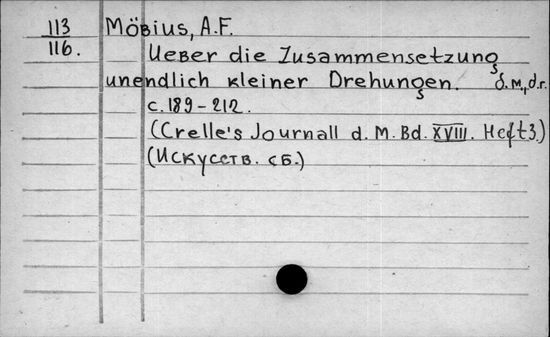 113 Möbius, A.F.
116. Ueber die Zusammensetzung
unendlich kleiner Drehungen. d.m., d.r.
c. 189-212.
(Crelle's Journall d. M. Bd. XVIII. Heft 3.)
(Искусств. сб.)